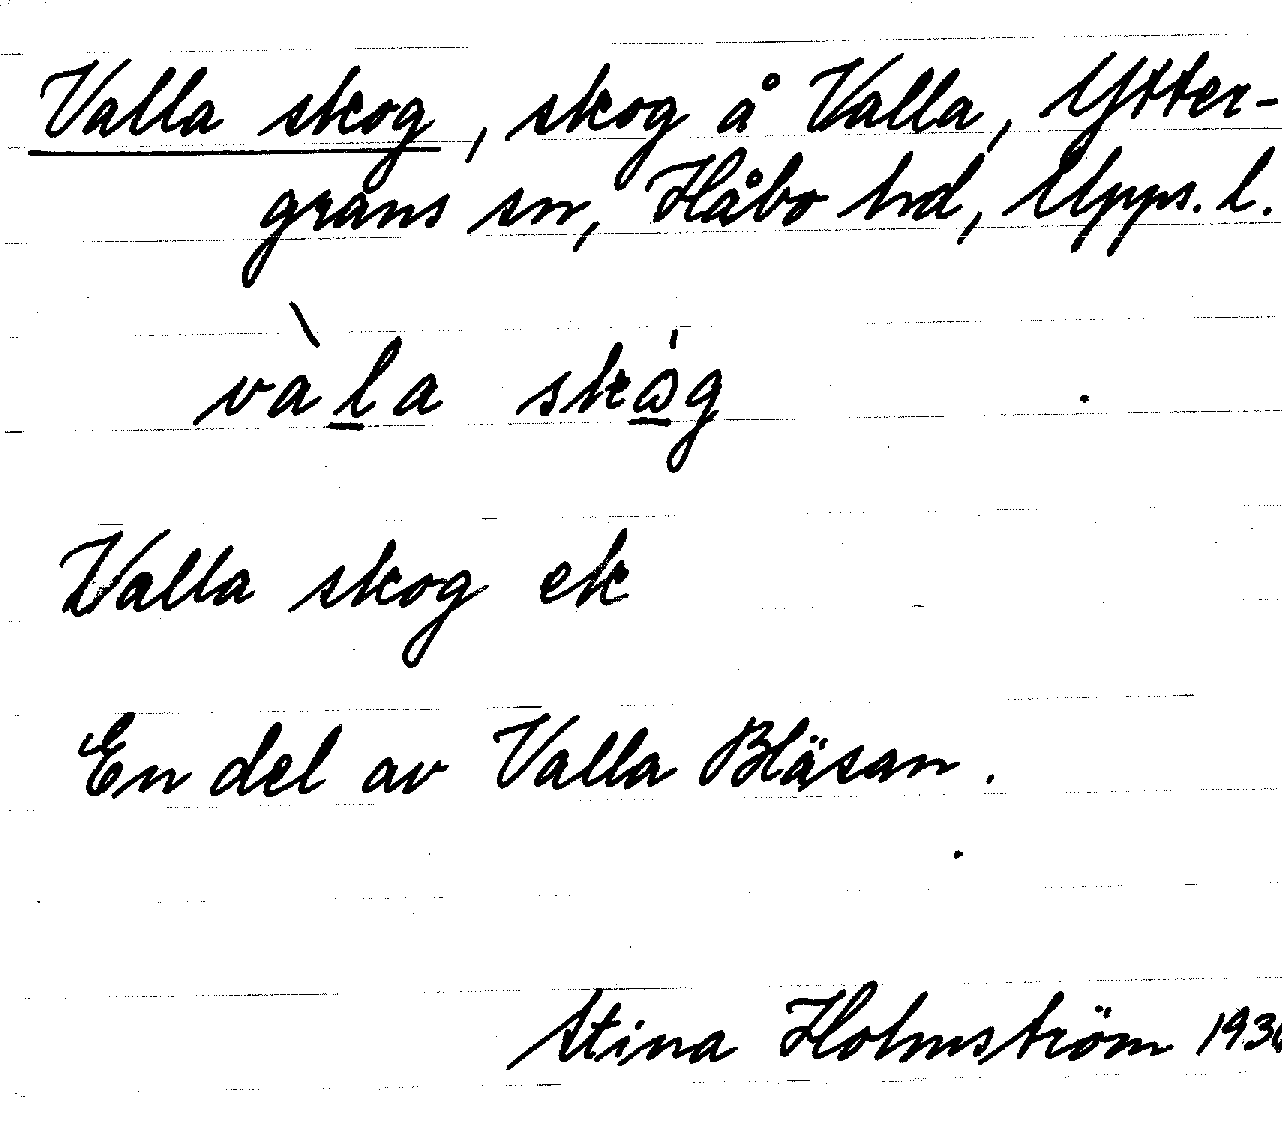 Valla skog, skog å Valla, Ytter-
grans sn, Håbo hd, Upps. l.
vàla skåg
Valla skog ek
En del av Valla Bläsan.
Stina Holmström